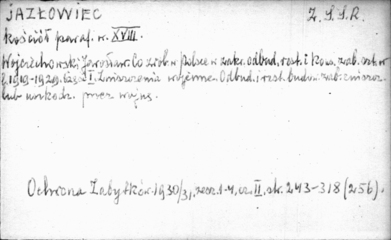 JAZŁOWIEC Z.S.S.R.
Kościół paraf. w. XVIII.
Wojciechowski Jarosław. Co zrob. w Polsce w zakr. odbud., rest. i kons. zab. arch. w
l. 1919-1929. Część I. Zniszczenia wojenne. Odbud. i rest. budow. zab. zniszcz.
lub uszkodz. przez wojnę.
Ochrona Zabytków. 1930/31, zesz. 1-4, cz. II, str. 243-318 (256).